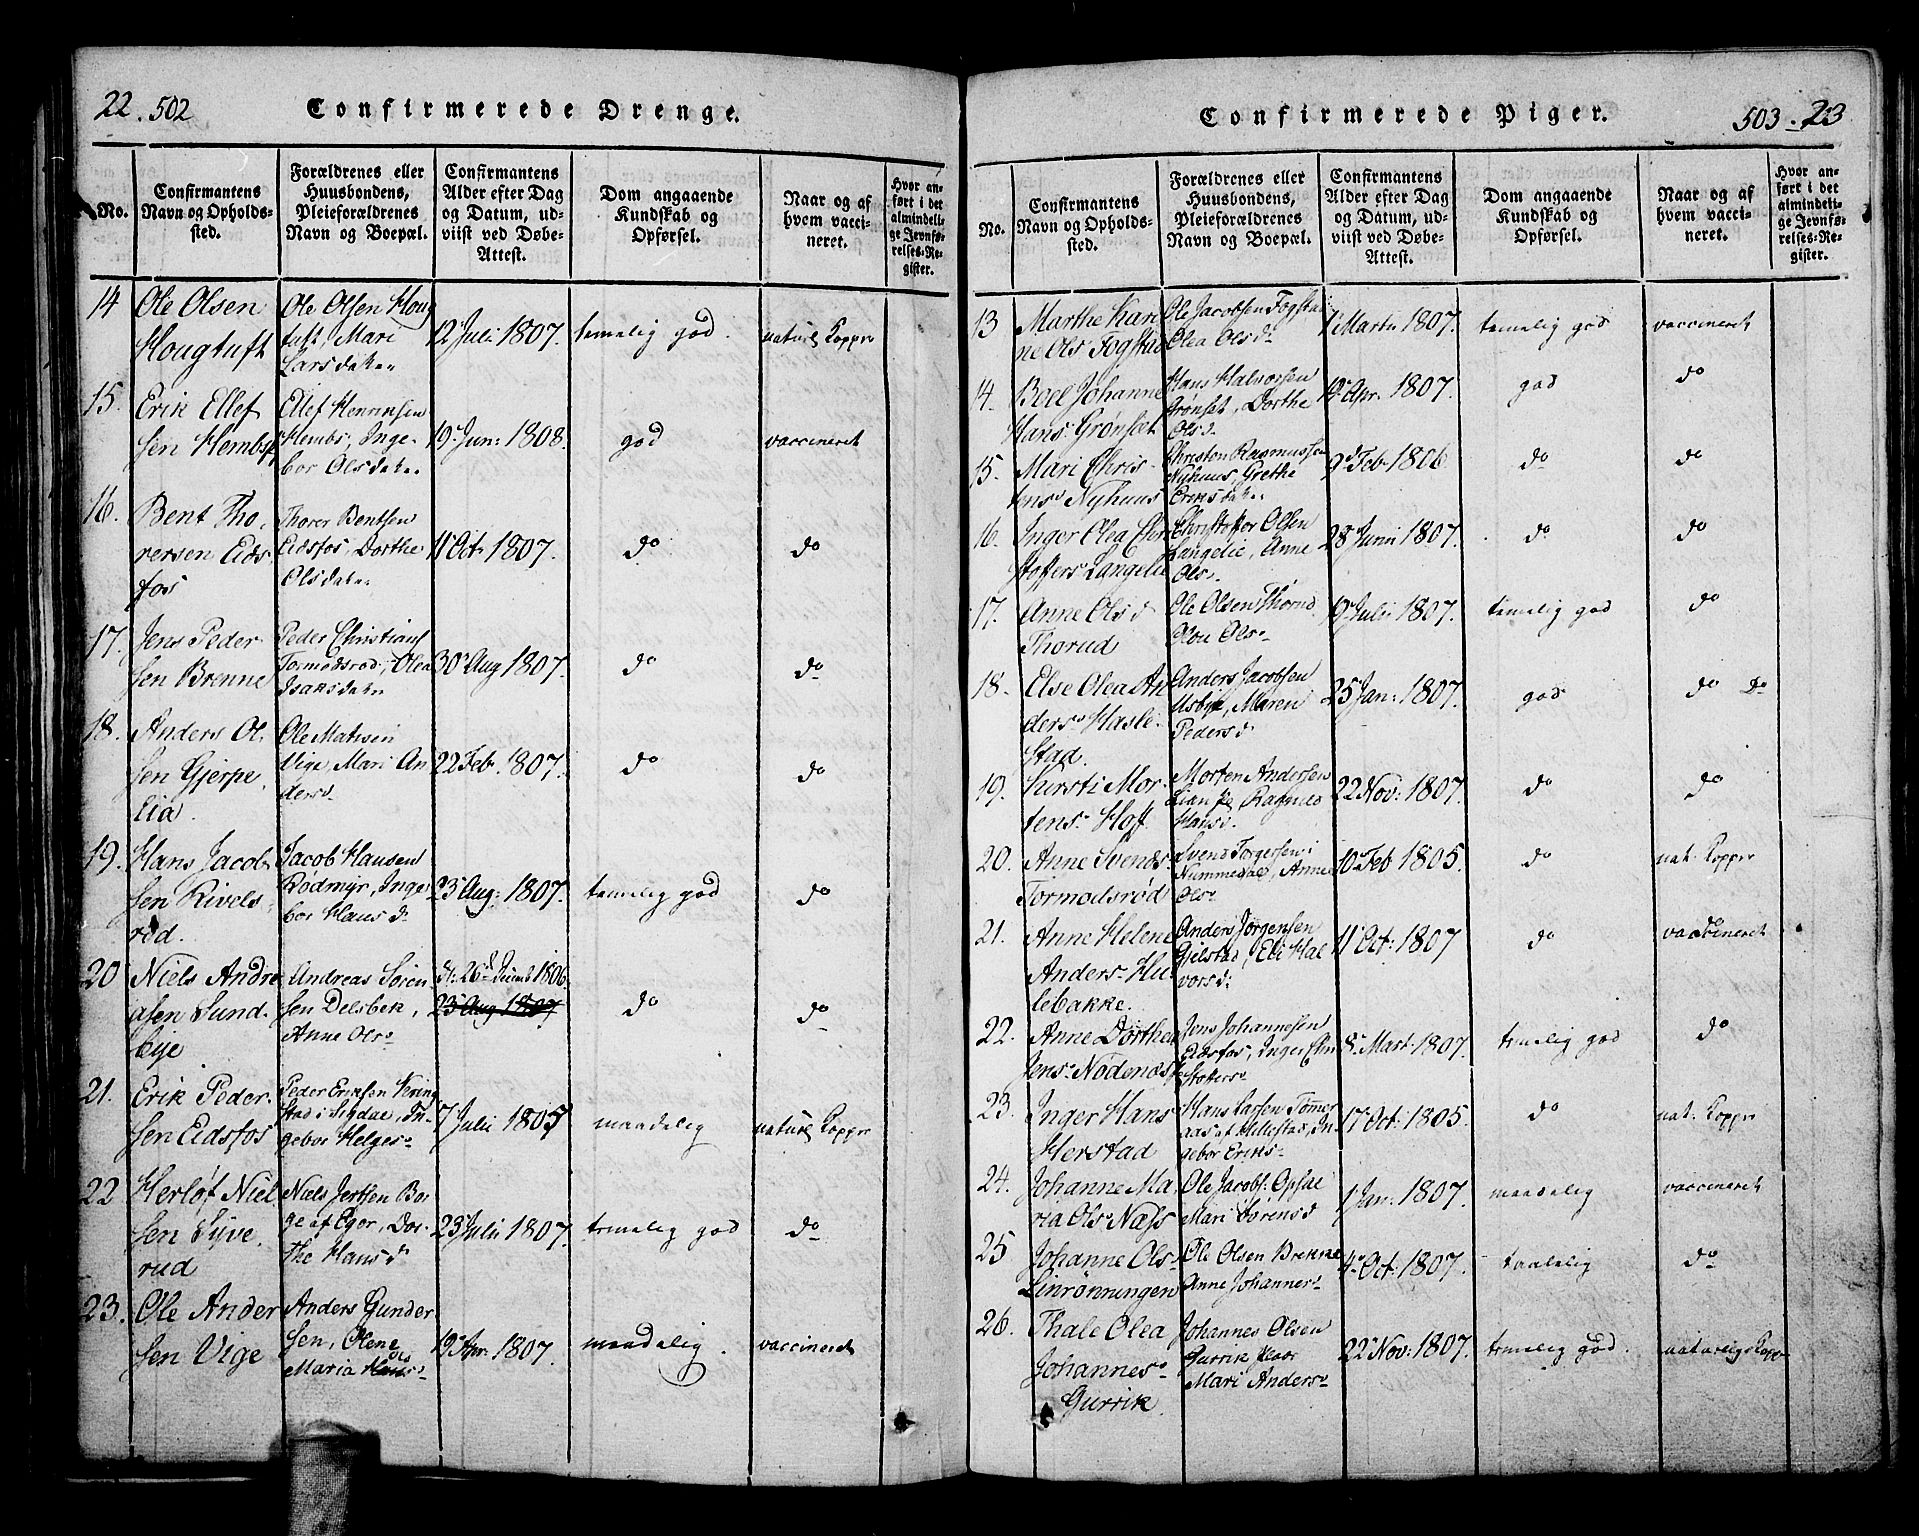 22. 502
Confirmerede Drenge.
No.
Confirmantens
Navn og Opholds-
sted.
Forældrenes eller
Huusbondens,
Pleieforældrenes
Navn og Boepæl.
Confirmantens
Alder efter Dag
og Datum, ud-
viist ved Døbe-
Attest.
Dom angaaende
Kundskab og
Opførsel.
Naar og af
hvem vacci-
neret.
Hvor an-
ført i det
almindeli-
ge Jevnfø-
relses-Re-
gister.
14
Ole Olsen
Hougtuft
Ole Olsen Houg
tuft, Mari
Lars
12 Juli 1807.
temelig god.
naturl Kopper
15.
Erik Ellef
sen Hembs
Ellef Henriksen
Hembs, Inge-
bor Ols
19 Jun: 1808.
god
vaccineret
16.
Bent Tho
rersen Eids
fos
Thorer Bentsen
Eidsfos, Dorthe
Ols
11 Oct: 1807.
do
do
17.
Jens Peder
sen Brenne
Peder Christians
Tormodsrød, Olea
Isaks
30 Aug 1807.
do
do
18.
Anders Ol
sen Gjerpe
lia.
Ole Matisen
Vige, Mari An
ders
22 Feb. 1807.
do
do
19.
Hans Jacob
sen Rivels
rød.
Jacob Hansen
Rødmyr, Inge
bor Hans d
23 Aug: 1807.
temelig god
do
20
Niels Andre
asen Sund
bye
Andreas Søren
sen Delsbek,
Anne Ols
26 1806.
23 Aug 1807
do
do
21.
Erik Peder
sen Eidsfos
Peder Eriksen
stad i Sigdal, In-
gebor Helges
7 Julii 1805
maadelig
naturl Kopper
22
Herløf Niel
sen Syve
rud
Niels Jertsen Bor
ge af Eger, Dor-
the Hans d
23 Julii 1807.
temelig god
do
23.
Ole Ander
sen Vige
Anders Gunder
sen, Olene
Maria
19 Apr: 1807.
maadelig.
vaccineret
Confirmerede Piger.
503. 23
No.
Confirmantens
Navn og Opholds-
sted.
Forældrenes eller
Huusbondens,
Pleieforældrenes
Navn og Boepæl.
Confirmantens
Alder efter Dag
og Datum, ud-
viist ved Døbe-
Attest.
Dom angaaende
Kundskab og
Opførsel.
Naar og af
hvem vacci-
neret.
Hvor an-
ført i det
almindeli-
ge Jevnfø-
relses-Re-
gister.
13
Marthe Kari
ne Ols Fogstad
Ole Jacobsen Fogstad
Olea Ols d
1 Marti 1807.
temelig god
vaccineret
14.
Boel Johanne
Hans Grønset
Hans Halvorsen
Grønset, Dorthe
Ols d
12 Apr. 1807.
god
do
15.
Mari Chris
tens Nyhuus
Christen Rasmussen
Nyhuus, Grethe
Eriks
9 Feb 1806
do
do
16.
Inger Olea Chri
stoffers Langelie
Christoffer Olsen
Langelie, Anne
Ols
28 Junii 1807.
do
do
17.
Anne Ols d
Thorud
Ole Olsen Thorud
Ols
19 Julii 1807.
temelig god
do
18.
Else Olea An
ders Hasle
stad.
Anders Jacobsen
Maren
Peders d
25 Jan: 1807.
god
do do
19.
Kirsti Mor
tens Hoff.
Morten Andersen
Lian Ragnild
Hans d.
22 Nov: 1807.
do
do
20.
Anne Svends
Tormodsrød
Svend Torgersen i
Nummedal, Anne
Ols
10 Feb 1805.
do
nat. Kopper
21.
Anne Helene
Anders Hu
lebakke.
Anders Jørgensen
Gjelstad, Eli Hal
vors d:
11 Oct: 1807
do
do
vaccineret
22.
Anne Dorthea
Jens Nødenæs
Jens Johannesen
Eidsfos, Inger Chri
stoffers
8 Mart: 1807.
temelig god
do
23.
Inger Hans
Herstad
Hans Larsen Tømmer
aas af Hillestad, In
gebor Eriks
17 Oct: 1805.
do
nat. Kopper
24.
Johanne Ma
ria Ols Næss
Ole Jacobs. Opsal
Mari Sørens d
1 Jan. 1807.
maadelig
vaccineret
25
Johanne Ols
Linrønningen
Ole Olsen Brenne
Anne Johannes
4 Oct: 1807.
taalelig
do
26.
Thale Olea
Johannes
Gurrik
Johannes Olsen
Gurrik
Mari Anders
22 Nov: 1807.
temelig god.
naturlig Kopper